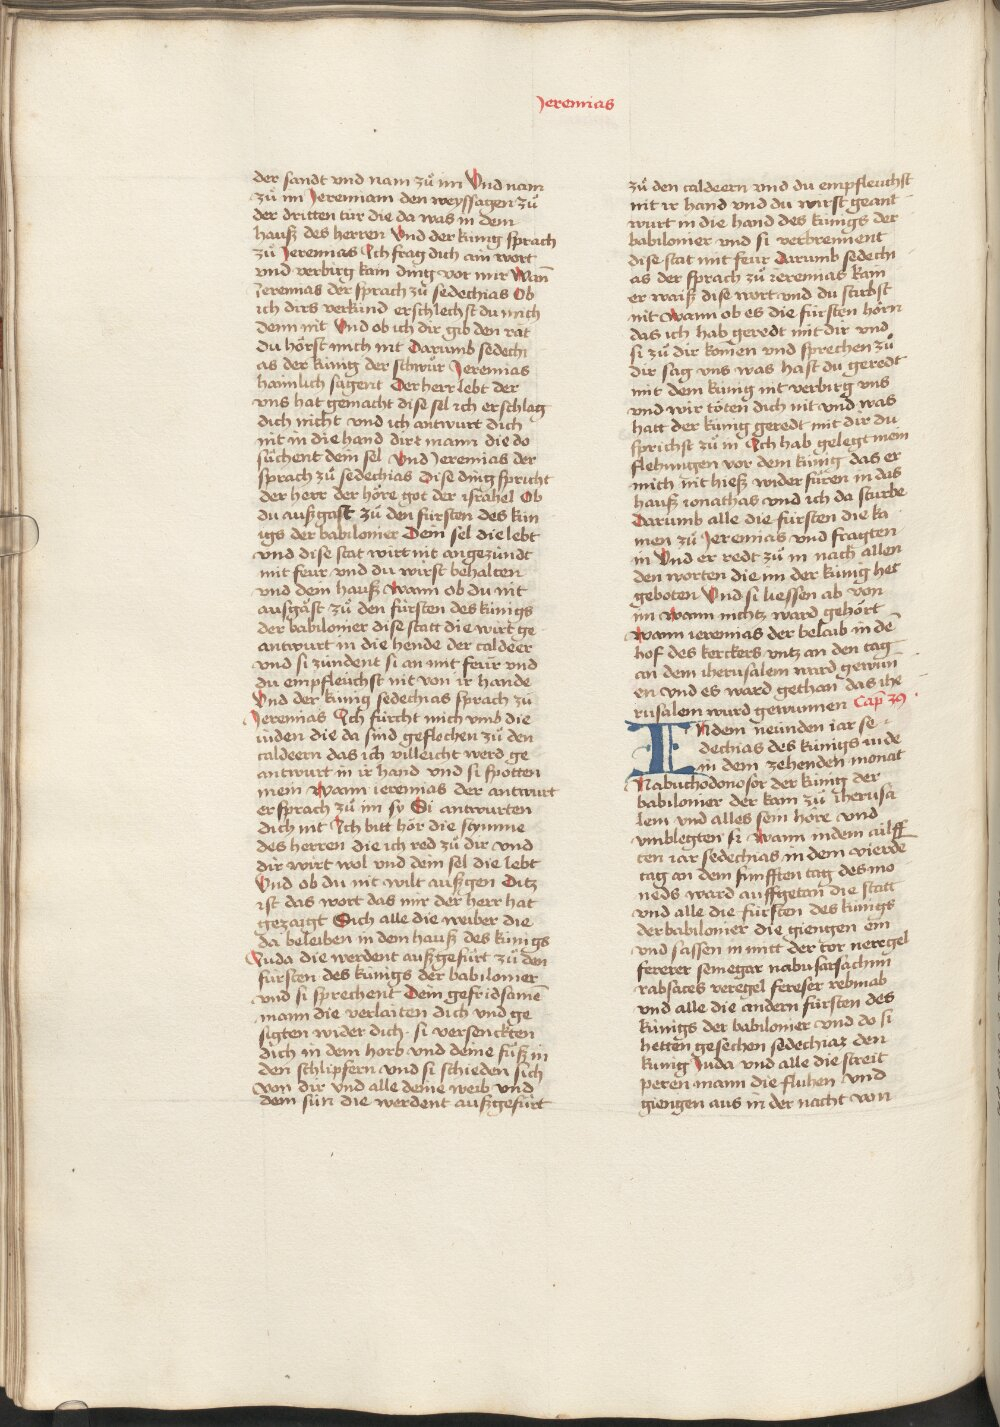 Jeremias
der sandt vnd nam zů im Vnd nam
zů im Jeremiam den weyssagen zů
der dritten tür die da was in dem
hauß des herren Vnd der künig sprach
zů Jeremias Ich frag dich ain wort
vnd verbirg kain ding vor mir Wañ
Jeremias der sprach zů sedechias Ob
ich dirs verkünd erschlechst du mich
denn nit Vnd ob ich dir gib den rät
du hörst mich nit Darumb sedechi
as der künig der schwůr Jeremias
haimlich sagent Der herr lebt der
vns hat gemacht dise sel ich erschlag
dich nicht vnd ich antwurt dich
nit in die hand dire mann die do
sůchent dein sel Vnd Jeremias der
sprach zů sedechias Dise ding spricht
der herr der höre got der israhel Ob
du außgast zů den fürsten des kün
igs der babilonier Dein sel die lebt
vnd dise stat wirt nit angezündt
mit feur vnd du wirst behalten
vnd dem hauß Wann ob du nit
ausgäst zů den fürsten des künigs
der babilonier dise statt die wirt ge
antwurt in die hende der caldeer
vnd si zündent si an mit feür vnd
du empfleüchst nit von ir hande
Vnd der künig sedechias sprach zů
Jeremias Ich fürcht mich vmb die
iuden die da sind geflochen zů den
caldeern das ich villeicht werd ge
antwurt in ir hand vnd si spotten
mein Wann ieremias der antwurt
er sprach zů im sy Si antwurten
dich nit Ich bitt hör die stymme
des herren die ich red zů dir vnd
dir wirt wol vnd dein sel die lebt
Vnd ob du nit wilt außgen Ditz
ist das wort das mir der herr hat
gezaigt Sich alle die weiber die
da beleiben in dem hauß des künigs
Juda die werdent außgefürt zů den
fürsten des künigs der babilonier
vnd si sprechent Dein gefridsamē
mann die verlaiten dich vnd ge
sigten wider dich si versenckten
dich in dem horb vnd deine füß in
den schlipfern vnd si schieden sich
von dir vnd alle deine weib vnd
dem sün die werdent außgefürt
zů den caldeern vnd du empfleuchst
nit ir hand vnd du wirst geant
wurt in die hand des künigs der
babilonier vnd si verbrennent
dise stat mit feur Darumb sedechi
as der sprach zů ieremias kain
er waiß dise wort vnd du stirbst
nit Wann ob es die fürsten hörn
das ich hab geredt mit dir vnd
si zů dir komen vnd sprechen zů
dir sag vns was hast du geredt
mit dem künig nit verbirg vns
vnd wir töten dich nit vnd was
hatt der künig geredt mit dir du
sprichst zů in Ich hab gelegt mein
flehungen vor dem künig das er
mich nit hieß wider füren in das
hauß ionathas vnd ich da sturbe
Darumb alle die fürsten die ka
men zů Jeremias vnd fragten
in Vnd er redt zů in nach allen
den worten die im der künig het
geboten Vnd si liessen ab von
im Wann nichtz ward gehört
Wann ieremias der belaib in dē
hof des kerckers vntz an den tag
an dem iherusalem ward gewun
en vnd es ward gethan das ihe
rusalem wurd gewunnen Cap̄ 39
In dem neünden iar se-
dechias des künigs iude
in dem zehenden monat
Nabuchodonosor der künig der
babilonier der kam zů iherusa
lem vnd alles sein höre vnd
vmblegten si Wann in dem ailff
ten iar sedechias in dem vierde
tag an dem fünfften tag des mo
neds ward auffgetan die statt
vnd alle die fürsten des künigs
der babilonier die giengen ein
vnd sassen in mitt der tor neregel
fererer semegar nabusarsachim
rabsaces neregel fereser rebmab
vnd alle die andern fürsten des
künigs der babilonier vnd do si
hetten gesechen sedechiaz den
künig Juda vnd alle die streit
peren mann die fluhen vnd
giengen aus in der nacht von